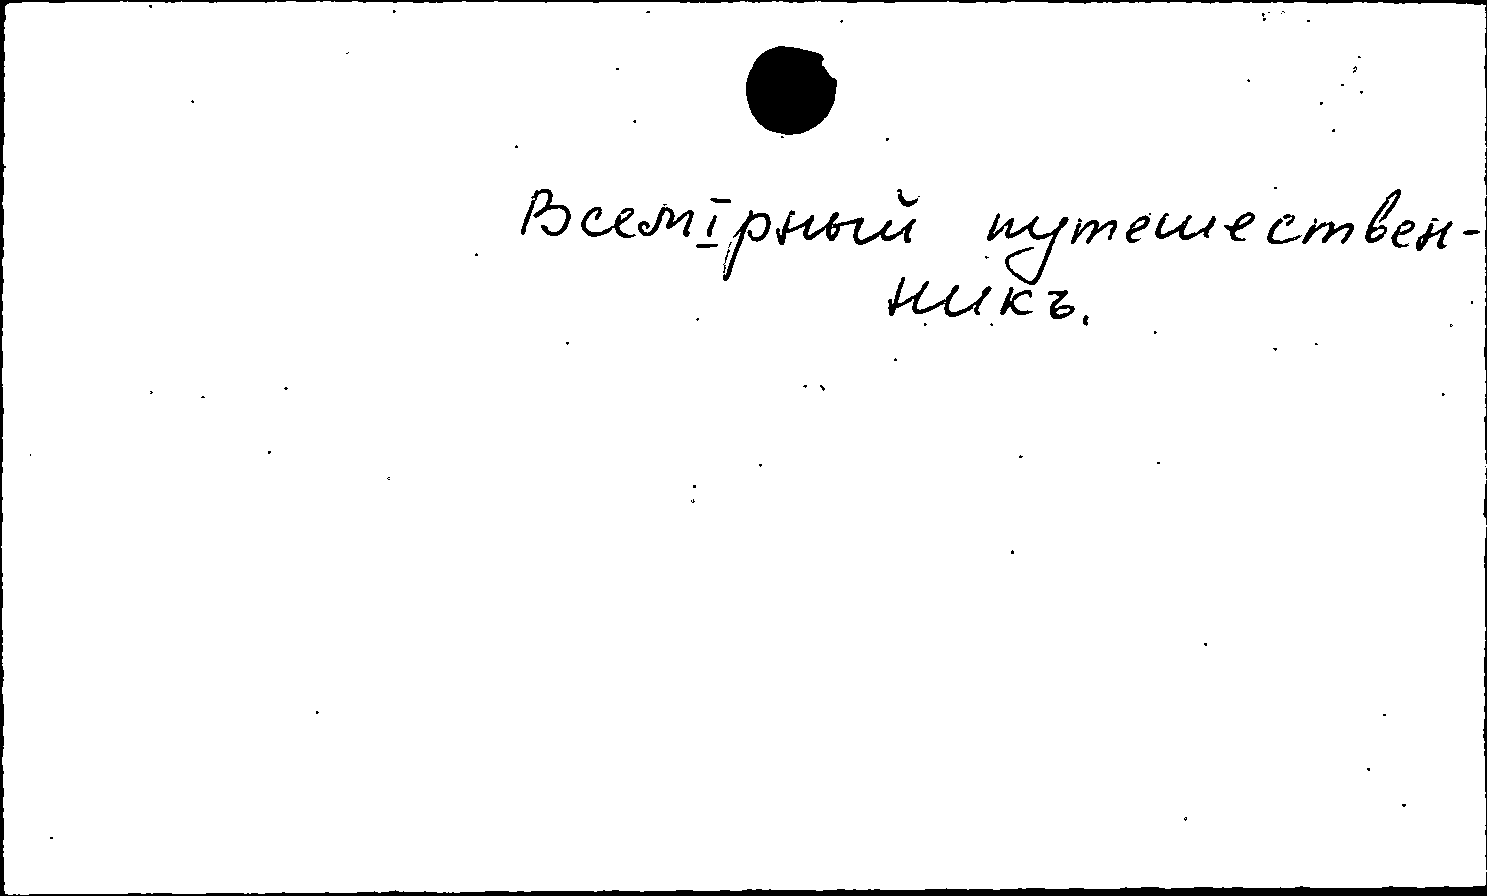 Всемірный путешествен-
никъ.